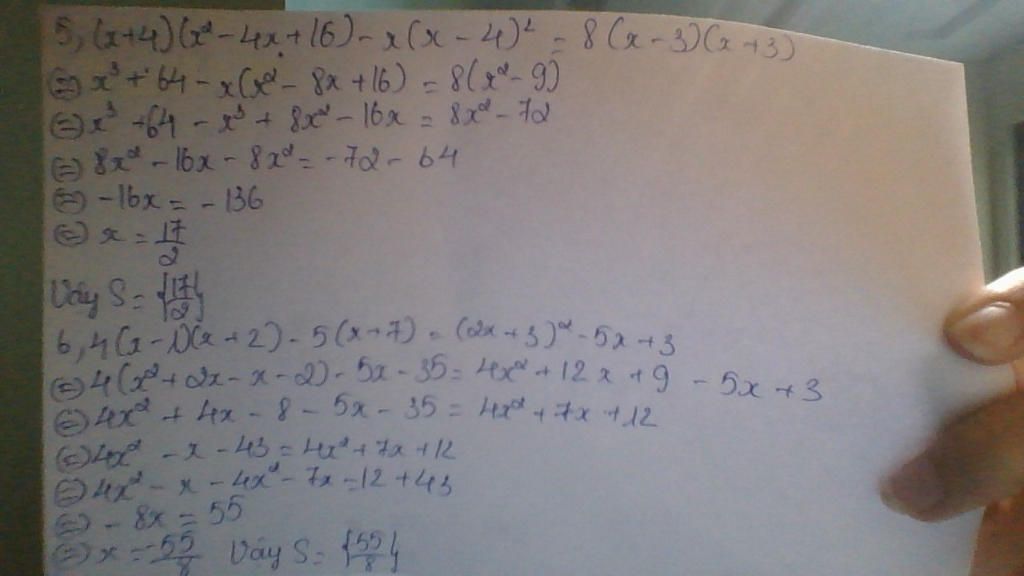 5, (x+4)(x² - 4x + 16) - x(x - 4)² = 8(x - 3)(x + 3)
⇔ x³ + 64 - x(x² - 8x + 16) = 8(x² - 9)
⇔ x³ + 64 - x³ + 8x² - 16x = 8x² - 72
⇔ 8x² - 16x - 8x² = -72 - 64
⇔ -16x = -136
⇔ x = 17/2
Vậy S = {17/2}
6, 4(x - 1)(x + 2) - 5(x + 7) = (2x + 3)² - 5x + 3
⇔ 4(x² + 2x - x - 2) - 5x - 35 = 4x² + 12x + 9 - 5x + 3
⇔ 4x² + 4x - 8 - 5x - 35 = 4x² + 7x + 12
⇔ 4x² - x - 43 = 4x² + 7x + 12
⇔ 4x² - x - 4x² - 7x = 12 + 43
⇔ - 8x = 55
⇔ x = -55/8 Vậy S = {55/8}